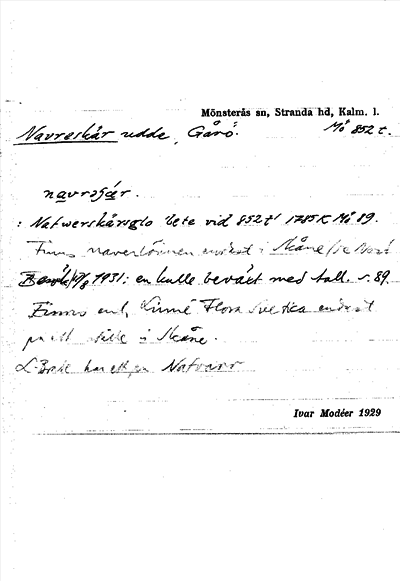 Mönsterås sn, Stranda hd, Kalm. l.
Navreskär udde, Gårö. Mö 852 t.
navrəʃär.
: Natwerskärsglo bete vid 852 t' 1785 K Mö 89.
Finns naverlönnen endast i Skåne
1931: en kulle beväxt med tall. s. 89.
Finns enl. Linné Flora Svecica endast
på ett ställe i Skåne.
har ett
Ivar Modéer 1929